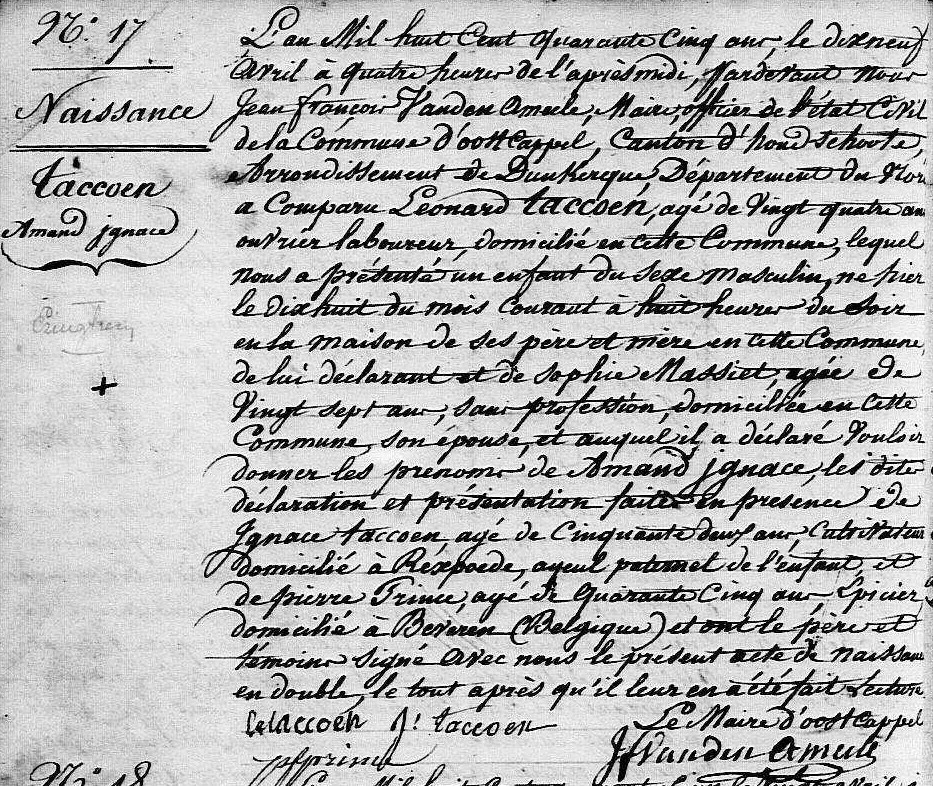 N.º 17
Naissance
taccoen
Amand jgnace
L'an Mil huit Cent quarante Cinq ans, le dix neuf
Avril à quatre heures de l'après midi, Pardevant nous
Jean françois Vanden Ameele, Maire, officier de l'état Civil
de la Commune d'oostCappel, Canton d'hondschoote,
Arrondissement de Dunkerque, Département du Nord
a Comparu Léonard taccoen, agé de Vingt quatre ans
ouvrier laboureur, domicilié en cette Commune, lequel
nous a présenté un enfant du sexe masculin, né hier
le dix huit du mois Courant à huit heures du Soir
en la maison de ses père et mère en cette Commune,
de lui déclarant et de sophie Massiet, agée de
Vingt sept ans, sans profession, domiciliée en Cette
Commune, son épouse, et auquel il a déclaré Vouloir
donner les prénoms de Amand jgnace, les dites
déclaration et présentation faites en presence de
Jgnace taccoen agé de Cinquante deux ans, Cultivateur
domicilié à Réxpoede, ayeul paternel de l'enfant, et
de pierre Prince, agé de Quarante Cinq ans Epicier,
domicilié à Beveren (Belgique) et ont le père et
témoins signé avec nous le présent acte de naissance
en double, le tout après qu'il leur en a été fait lecture
Le Maire d'oostCappel
L taccoen J: taccoen
pf prince
Jf Vanden Ameele
N.º 18